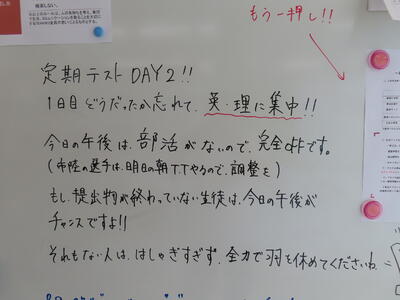 もう一押し!!
定期テストDAY2!!
1日目どうだったか忘れて、英・理に集中!!
今日の午後は、部活がないので、完全offです。
(市陸の選手は、明日の朝T.Tやるので、調整を)
もし、提出物が終わっていない生徒は、今日の午後が
チャンスですよ!!
それもない人は、はしゃぎすぎず、全力で羽を休めてくださいね。